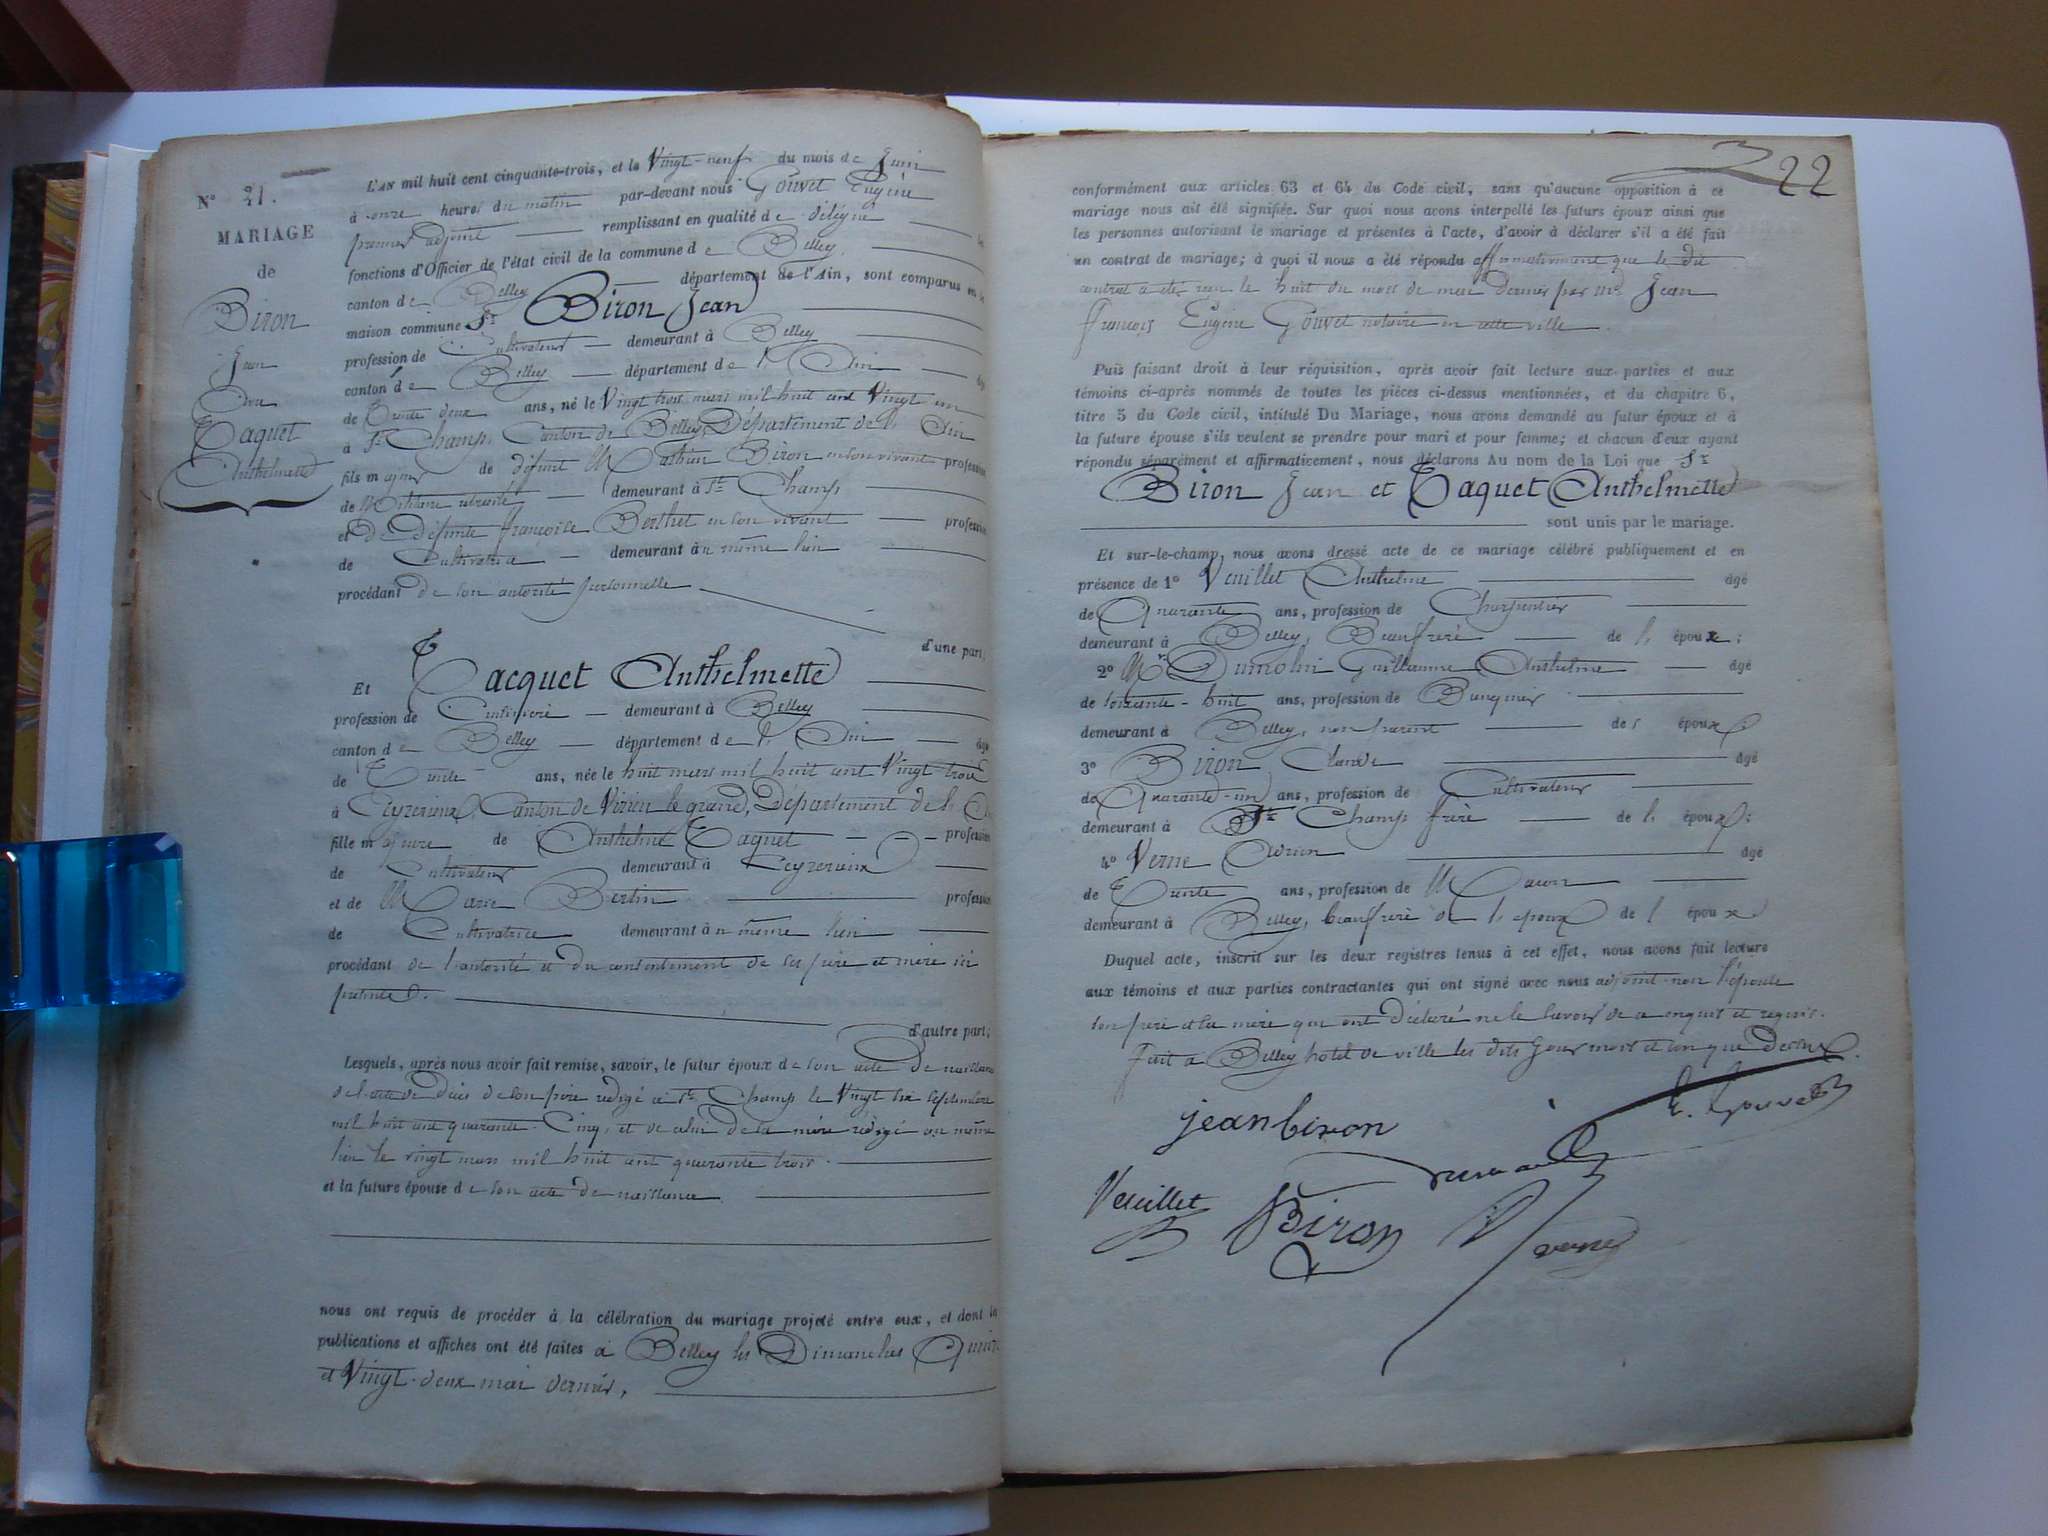 N° 21.
MARIAGE
de
Biron
Jean
Et
Taquet
Anthelmette
L'AN mil huit cent cinquante-trois, et le Vingt-neuf du mois de Juin
à onze heures du matin par-devant nous Gouvet Eugène
premier adjoint remplissant en qualité de délégué les
fonctions d'Officier de l'état civil de la commune de Belley
canton de Belley département de l'Ain, sont comparus en la
maison commune Sr Biron Jean
profession de Cultivateur demeurant à Belley
canton de Belley département de l'Ain âgé
de Trente deux ans, né le Vingt trois mars mil huit cent Vingt un
à St Champ, Canton de Belley, Département de l'Ain
fils majeur de défunt Mathieu Biron en son vivant profession
de Militaire retraité demeurant à St Champ
et de Défunte Françoise Berthet en son vivant profession
de Cultivatrice demeurant au même lieu
procédant de son autorité personnelle
d'une part;
Et Tacquet Anthelmette
profession de Cuisinière demeurant à Belley
canton de Belley département de l'Ain âgé
de Trente ans, née le huit mars mil huit cent Vingt trois
à Ceyzerieux, Canton de Virieu le grand, Département de l'
fille majeure de Anthelme Taquet profession
de Cultivateur demeurant à Ceyzerieux
et de Marie Bertin profession
de Cultivatrice demeurant au même lieu
procédant de l'autorité et du consentement de ses père et mère ici
présents.
d'autre part;
Lesquels, après nous avoir fait remise, savoir, le futur époux de son acte de naissance
de l'acte de décès de son père rédigé à St Champ le Vingt six septembre
mil huit cent quarante-Cinq, et de celui de sa mère rédigé au même
lieu le vingt mars mil huit cent quarante trois.
et la future épouse de son acte de naissance.
nous ont requis de procéder à la célébration du mariage projeté entre eux, et dont les
publications et affiches ont été faites à Belley les Dimanches Quinze
et Vingt-deux mai dernier,
22
conformément aux articles 63 et 64 du Code civil, sans qu'aucune opposition à ce
mariage nous ait été signifiée. Sur quoi nous avons interpellé les futurs époux ainsi que
les personnes autorisant le mariage et présentes à l'acte, d'avoir à déclarer s'il a été fait
un contrat de mariage; à quoi il nous a été répondu affirmativement que le dit
contrat a été reçu le huit du mois de mai dernier par Me Jean
François Eugène Gouvet notaire en cette ville.
Puis faisant droit à leur réquisition, après avoir fait lecture aux parties et aux
témoins ci-après nommés de toutes les pièces ci-dessus mentionnées, et du chapitre 6,
titre 5 du Code civil, intitulé Du Mariage, nous avons demandé au futur époux et à
la future épouse s'ils veulent se prendre pour mari et pour femme; et chacun d'eux ayant
répondu séparément et affirmativement, nous déclarons Au nom de la Loi que Sr
Biron Jean et Taquet Anthelmette
sont unis par le mariage.
Et sur-le-champ, nous avons dressé acte de ce mariage célébré publiquement et en
présence de 1° Veuillet Anthelme âgé
de Quarante ans, profession de Charpentier
demeurant à Belley, Beaufrère de l'époux;
2° Mr Dumolin Guillaume Anthelme âgé
de soixante-huit ans, profession de Banquier
demeurant à Belley, non parent des époux;
3° Biron Claude âgé
de Quarante-un ans, profession de Cultivateur
demeurant à St Champ frère de l'époux;
4° Verne âgé
de Trente ans, profession de Maçon
demeurant à Belley, beaufrère de l'époux de l'époux
Duquel acte, inscrit sur les deux registres tenus à cet effet, nous avons fait lecture
aux témoins et aux parties contractantes qui ont signé avec nous adjoint-non l'épouse
son père et sa mère qui ont déclaré ne le savoir de ce enquis et requis.
Fait à Belley hôtel de ville les dits jour mois et an que dessus.
jean biron
E. Gouvet
Veuillet
Biron
Verne